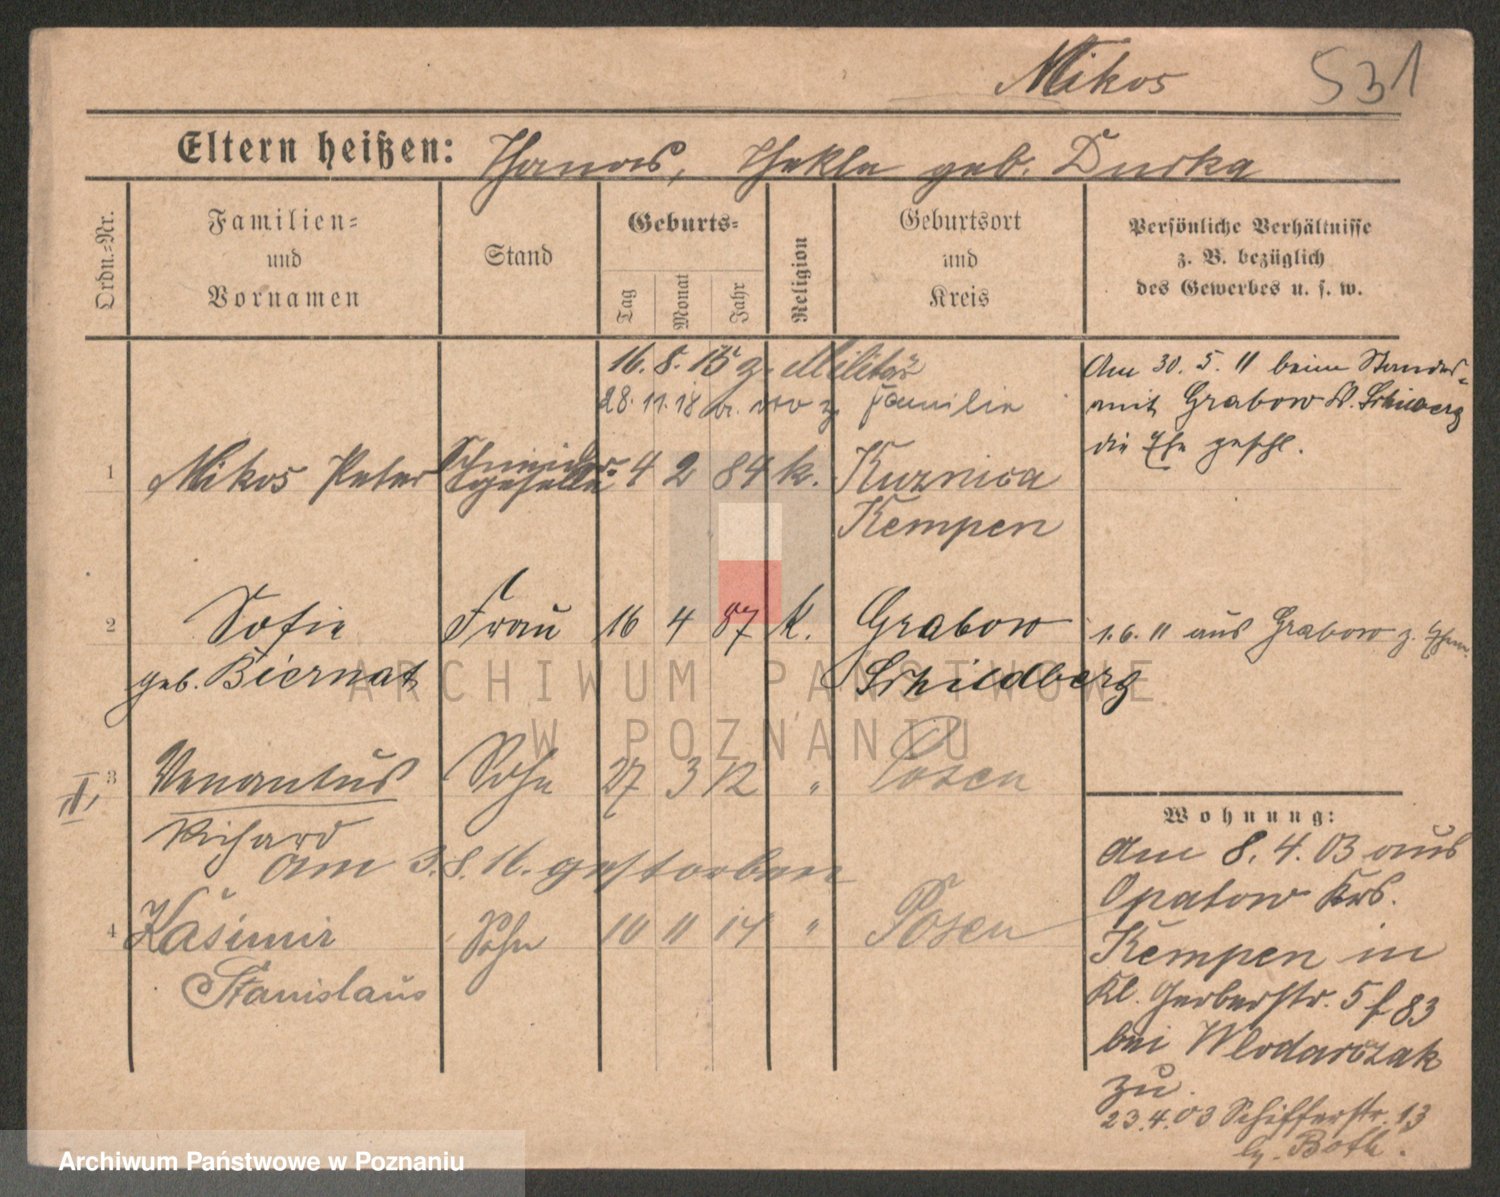 Mikos 531
Eltern heißen: Thomas, Thekla geb. Durka
Ordn.=Nr.
Familien=
und
Vornamen
Stand
Geburts=
Tag
Monat
Jahr
Religion
Geburtsort
und
Kreis
Persönliche Verhältnisse
z. B. bezüglich
des Gewerbes u. s. w.
16. 8. 15 z. Militär
28. 11. 18 v. wo z. Familie
Am 30. 5. 11 beim Standes-
amt Grabow Kr. Schildberg
die Ehe geschl.
1 Mikos Peter Schneider-
geselle 4 2 84 k. Kuznica
Kempen
2 Sofie Frau 16 4 87 k. Grabow
geb. Biernat Schildberg
1. 6. 11 aus Grabow z. Ehem.
II, 3 Venantius Sohn 27 3 12 " Posen
Richard
am 3. 8. 16. gestorben
4 Kasimir Sohn 10 11 14 " Posen
Stanislaus
Wohnung:
Am 8. 4. 03 aus
Opatow Krs.
Kempen in
Kl. Gerberstr. 5 f 83
bei Wlodarczak
zu.
23. 4. 03 Schifferstr. 13
b. Both.
ARCHIWUM PAŃSTWOWE
W POZNANIU
Archiwum Państwowe w Poznaniu